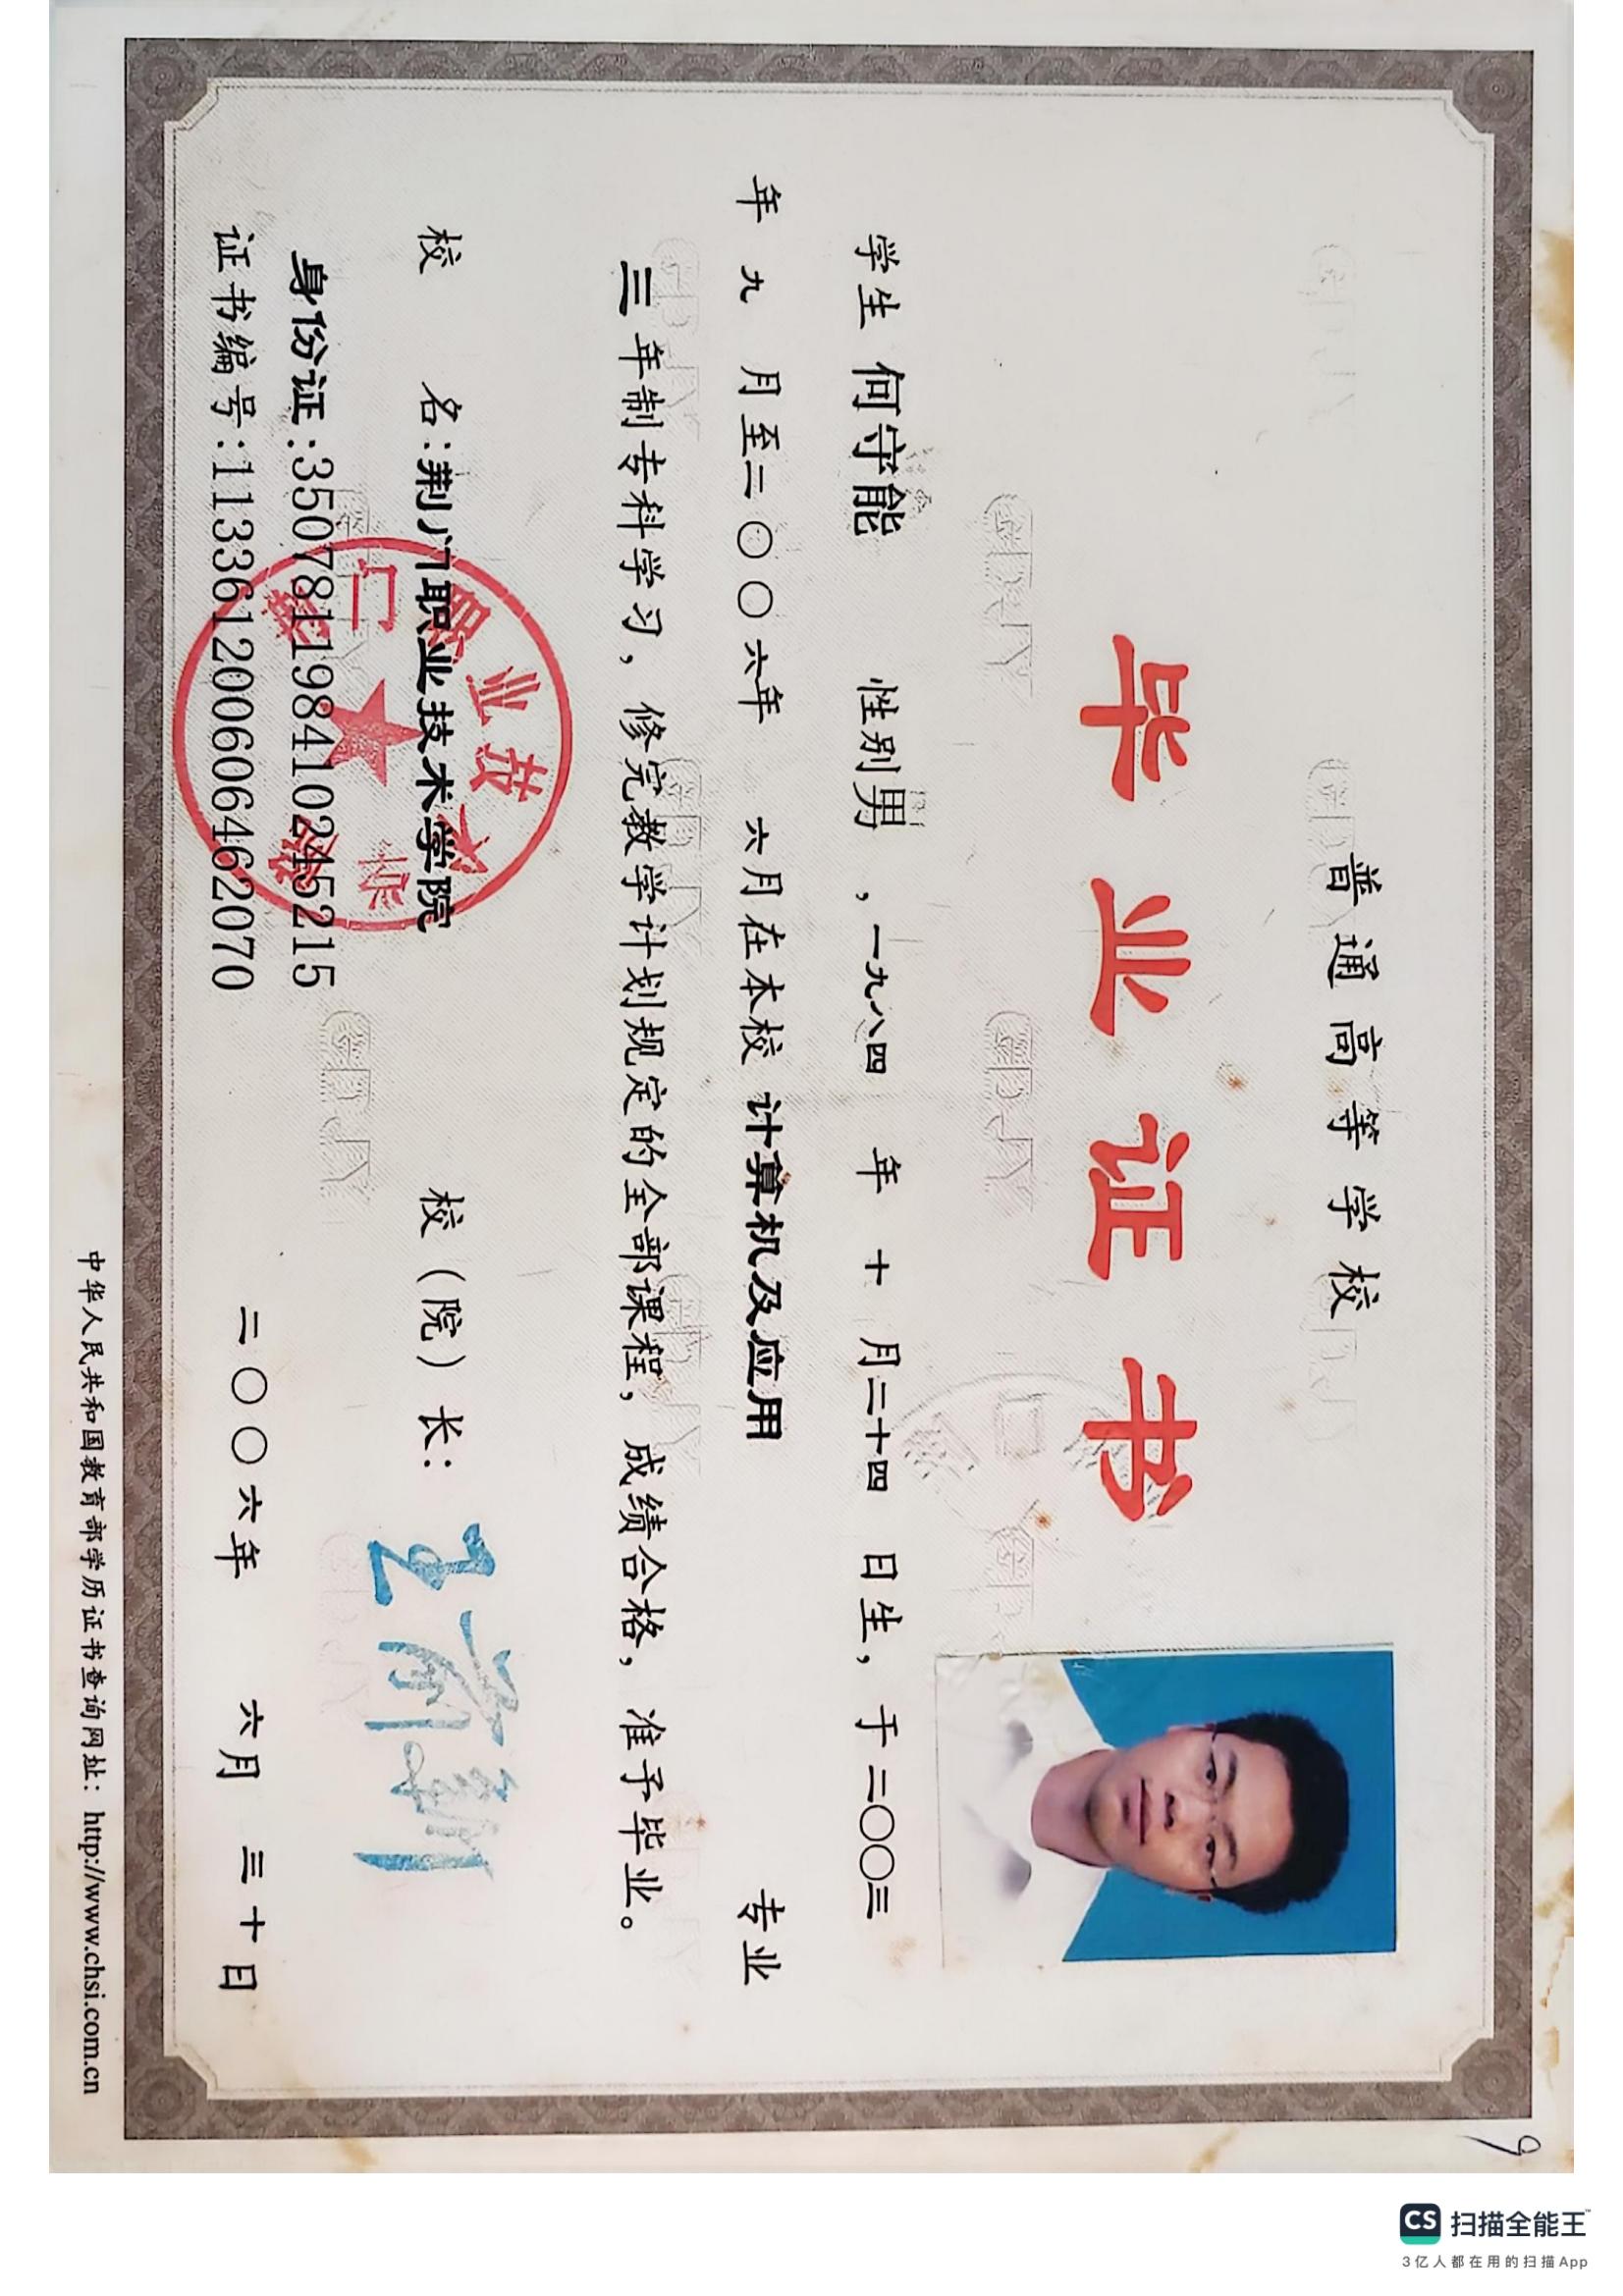 普通高等学校
毕业证书
学生 何守能 性别男 ,一九八四 年 十 月二十四 日生, 于 二〇〇三
年 九 月至二〇〇六年 六月在本校 计算机及应用 专业
三年制专科学习, 修完教学计划规定的全部课程, 成绩合格, 准予毕业。
校 名:荆门职业技术学院 校(院)长:
身份证:350781198410245215
证书编号:113361200606462070 二〇〇六年 六月 三十日
中华人民共和国教育部学历证书查询网址: http://www.chsi.com.cn
9
CS 扫描全能王™
3亿人都在用的扫描App